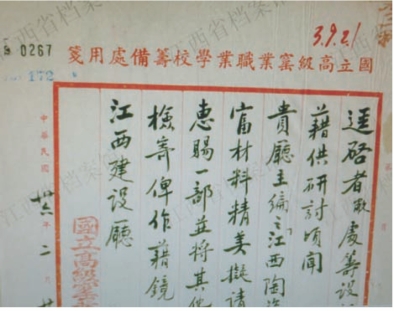 3.9.21
0267
172
國立高級窯業職業學校籌備處用箋
逕啓者敝處籌設
藉供研討頃聞
貴廳主編之江西陶瓷
富材料精美擬請
惠賜一部並將其他
檢寄俾作藉鏡
江西建設廳
中華民國卅六年二月
國立高級窯業
江西省档案馆